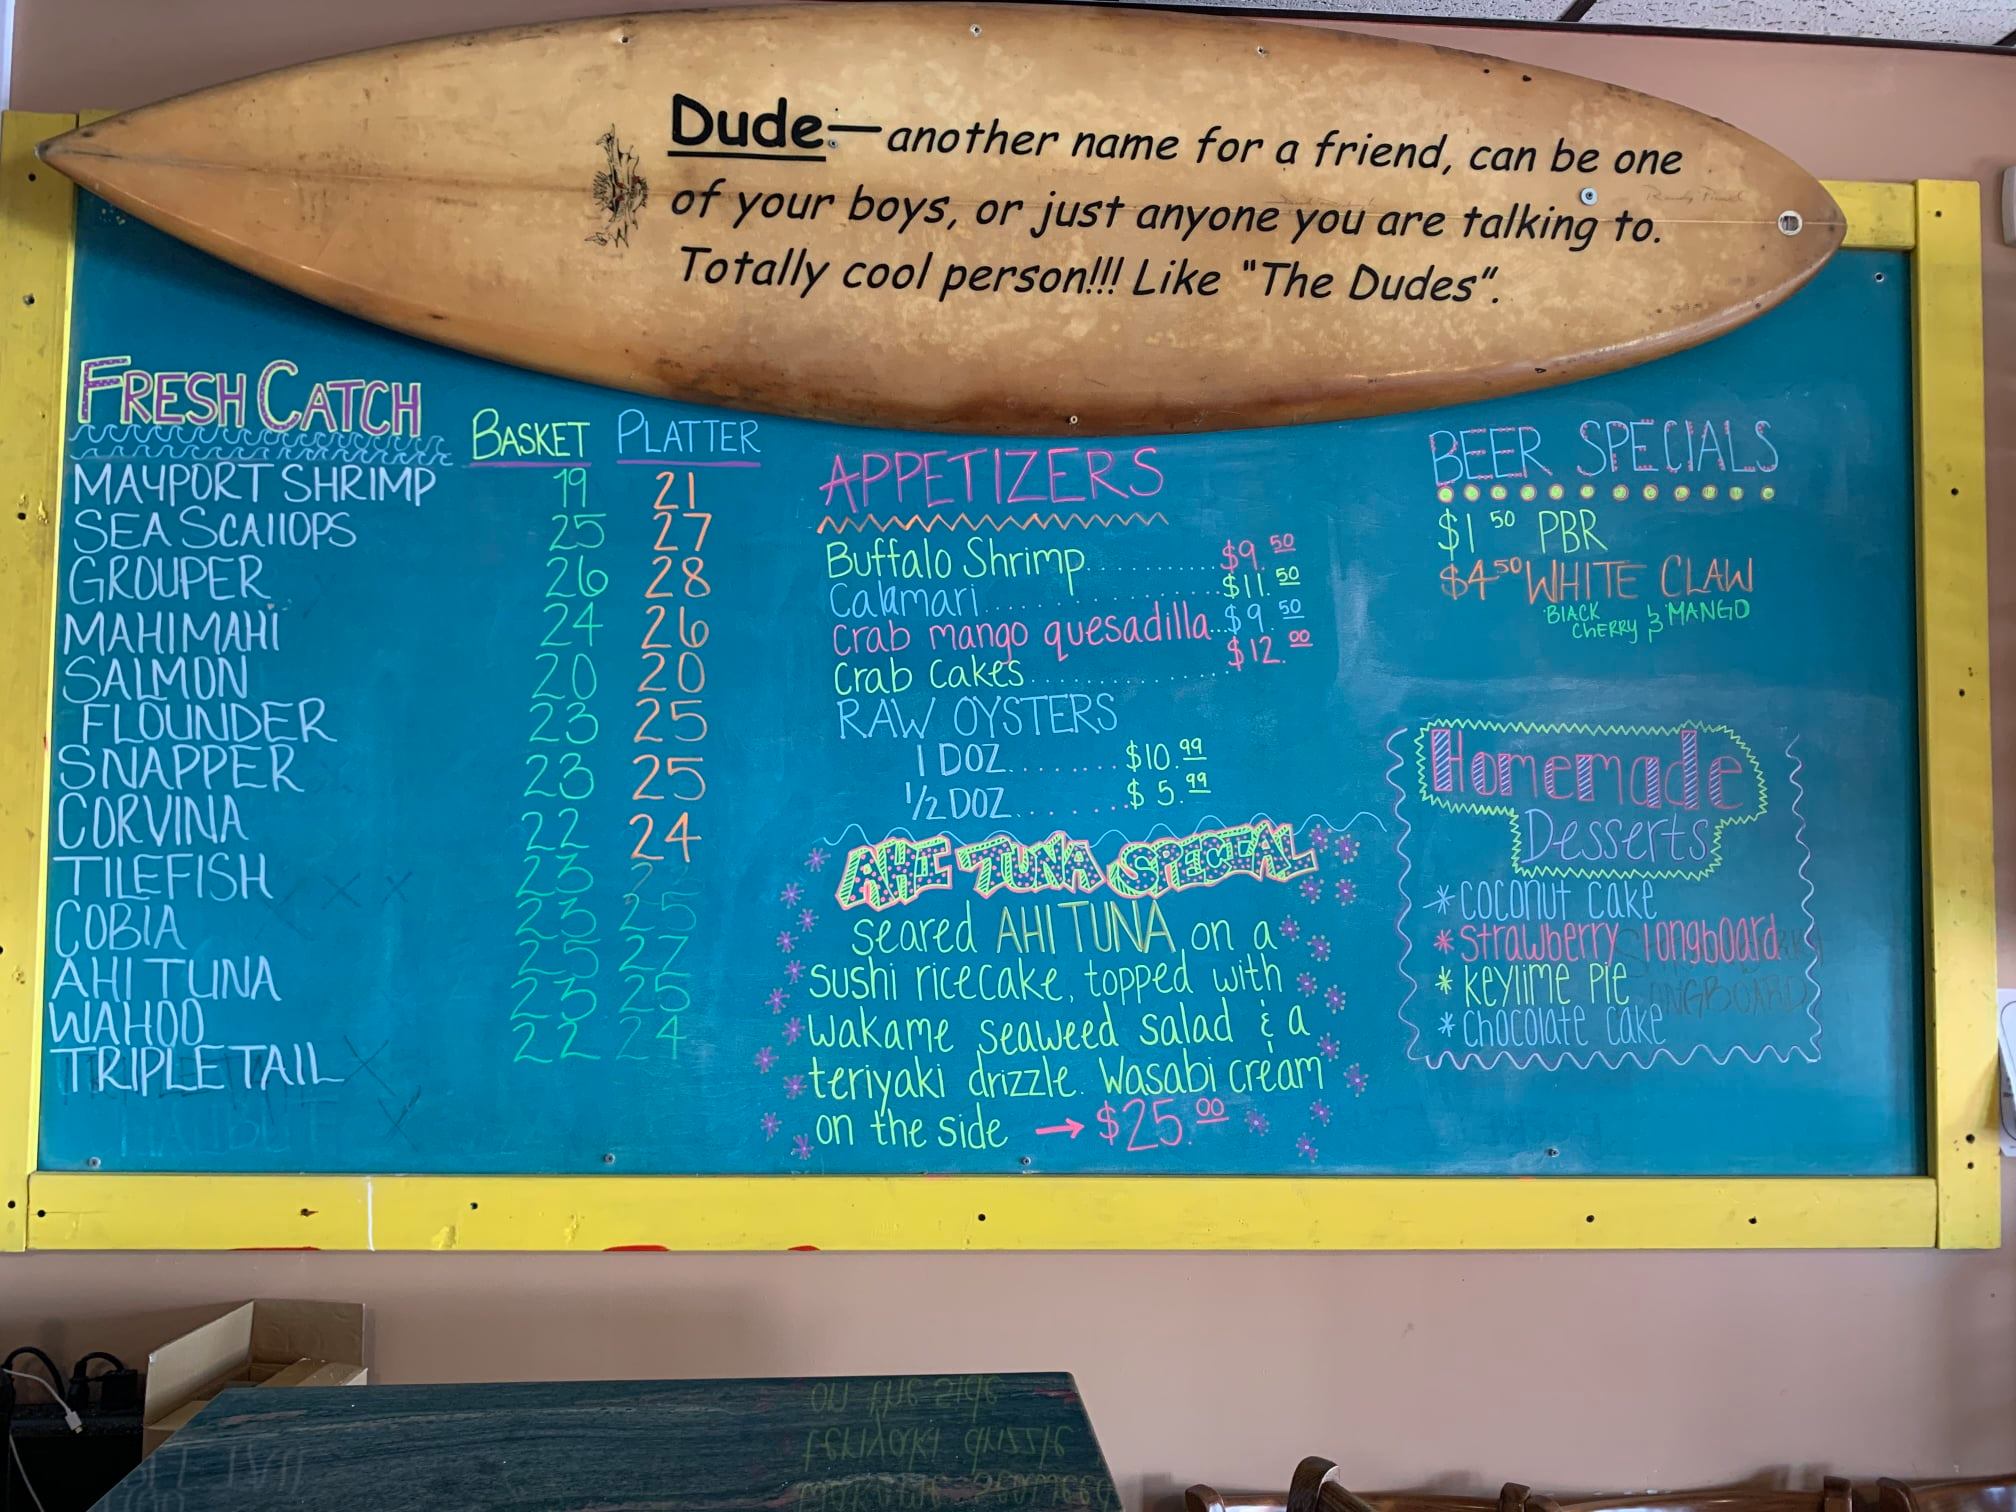 Dude:—another name for a friend, can be one
of your boys, or just anyone you are talking to.
Totally cool person!!! Like "The Dudes".
FRESH CATCH BASKET PLATTER
MAYPORT SHRIMP 19 21
SEA SCAllOPS 25 27
GROUPER 26 28
MAHIMAHI 24 26
SALMON 20 20
FLOUNDER 23 25
SNAPPER 23 25
CORVINA 22 24
TILEFISH 23
COBIA 23 25
AHI TUNA 25 27
WAHOO 23 25
TRIPLETAIL 22 24
HALIBUT
APPETIZERS
Buffalo Shrimp..........$9.50
Calamari....................$11.50
Crab mango quesadilla...$9.50
Crab Cakes................$12.00
RAW OYSTERS
1 DOZ........$10.99
1/2 DOZ........$5.99
AHI TUNA SPECIAL
Seared AHI TUNA on a
sushi ricecake, topped with
wakame seaweed salad & a
teriyaki drizzle. Wasabi cream
on the side → $25.00
BEER SPECIALS
$1 50 PBR
$4 50 WHITE CLAW
BlACK CHERRY & MANGO
Homemade
Desserts
* COCONUT CAKE
* Strawberry longboard
* KEYlIME PIE
* CHOCOlATE CAKE